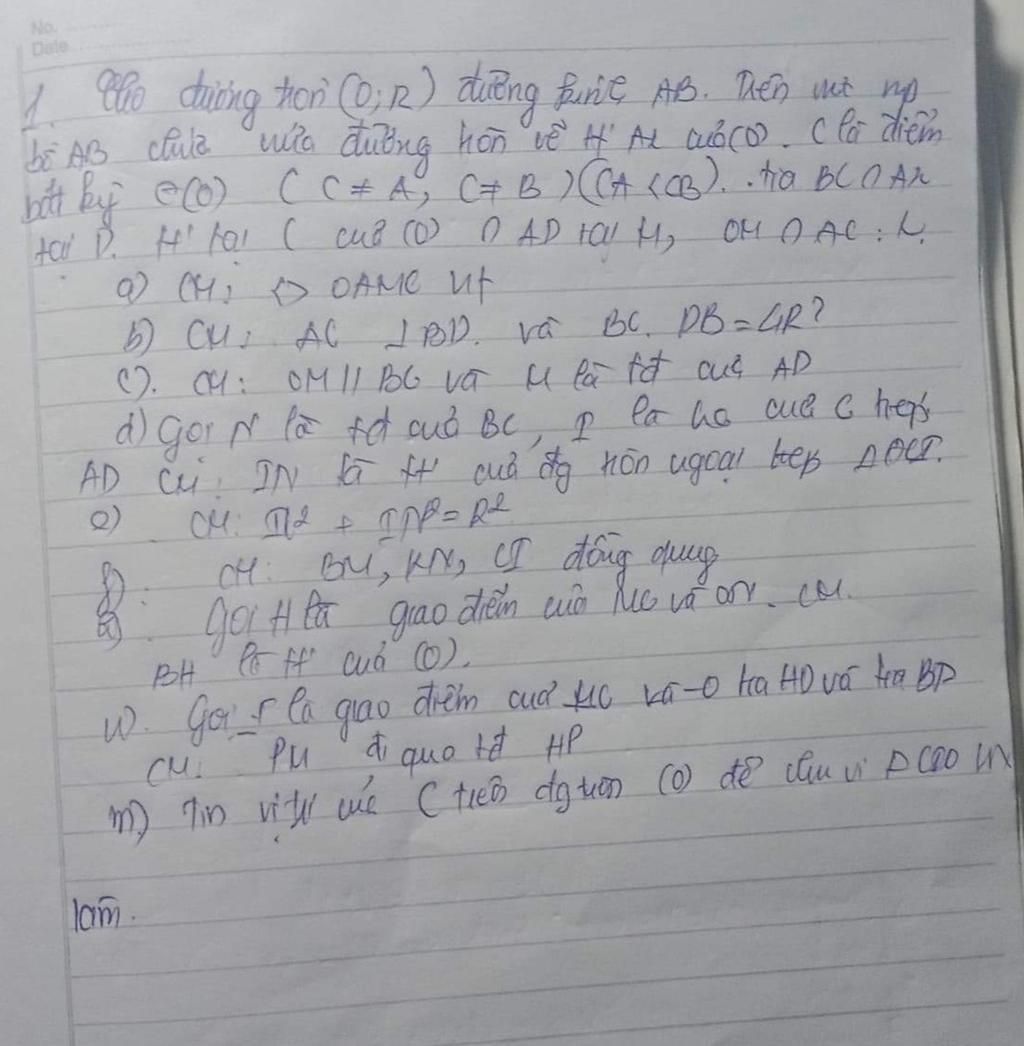 No.
Date
1. Cho đường tròn (O; R) đường kính AB. Trên mt np
bờ AB chứa nửa đường tròn vẽ tt' Ax của (O). C là điểm
bất kỳ ∈ (O) (C ≠ A, C ≠ B) (CA < CB). tia BC ∩ Ax
tại D. tt' tại C của (O) ∩ AD tại M, OM ∩ AC :
a) CM: OAMC nt
b) CM: AC ⊥ BD. và BC. DB = 4R²
c). CM: OM // BC và M là tđ của AD
d) Gọi N là tđ của BC, I là hc của C trên
AD CM: IN là tt' của đg tròn ngoại tiếp
e) CM: + IN² = R²
f). CM: BM, KN, CI đồng quy
g). Gọi H là giao điểm của MC và ON. CM.
BH là tt' của (O).
Gọi là giao điểm của MC và tia HO và tia BD
CM: PM đi qua tđ HP
m) Tìm vị trí của C trên đg tròn (O) để chu vi LN
làm.